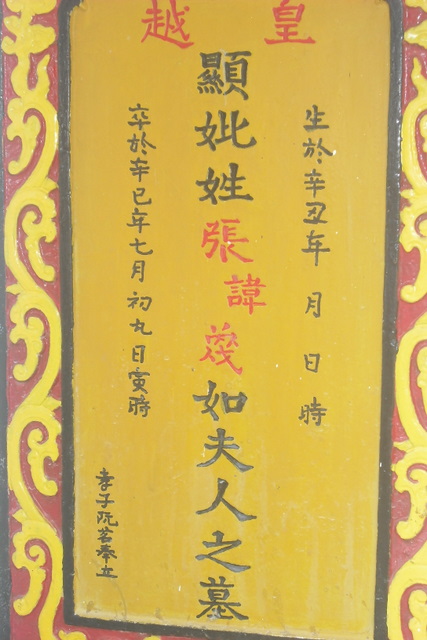 皇越
生於辛丑年 月 日 時
顯妣姓張諱如夫人之墓
卒於辛巳年七月初九日寅時
孝子阮茗奉立